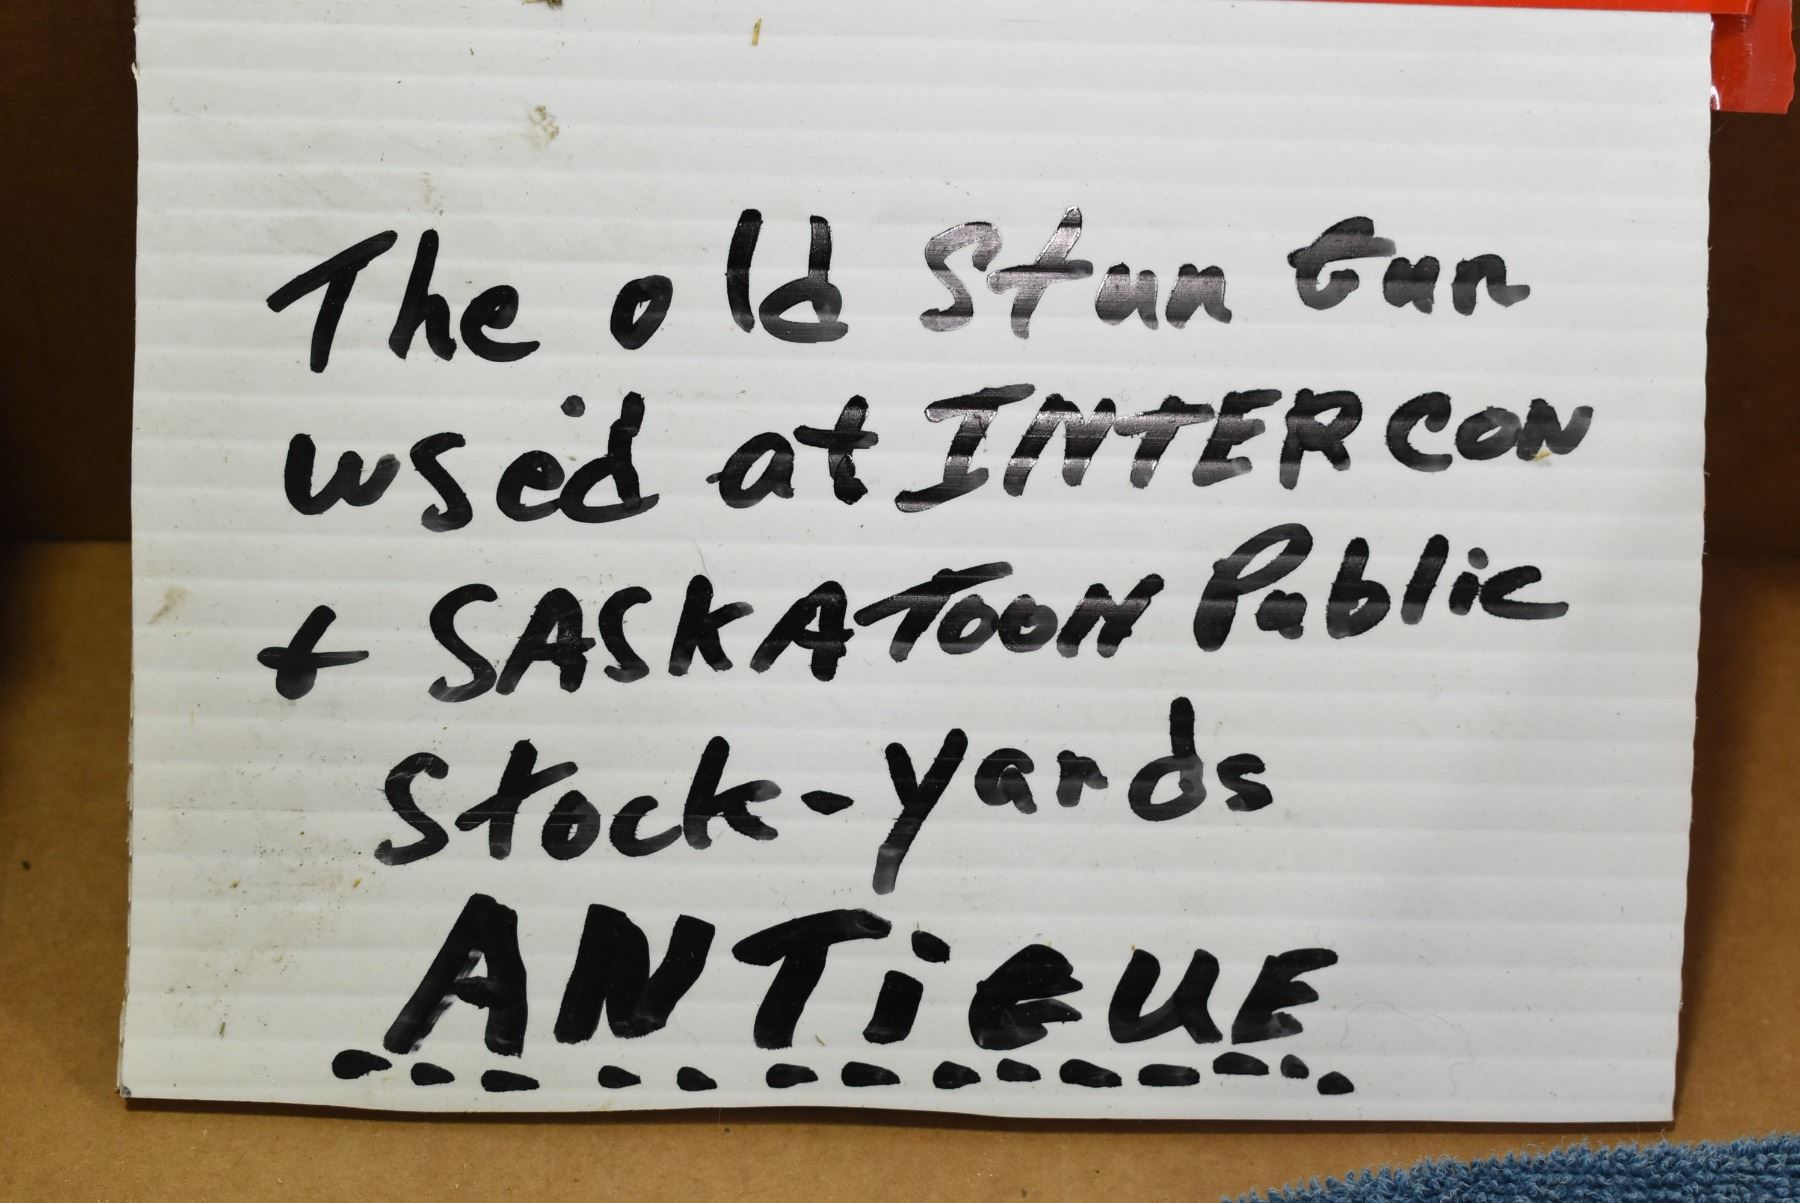 The old Stun Gun
used at INTERCON
+ SASKATOON Public
Stock-yards
ANTiQUE